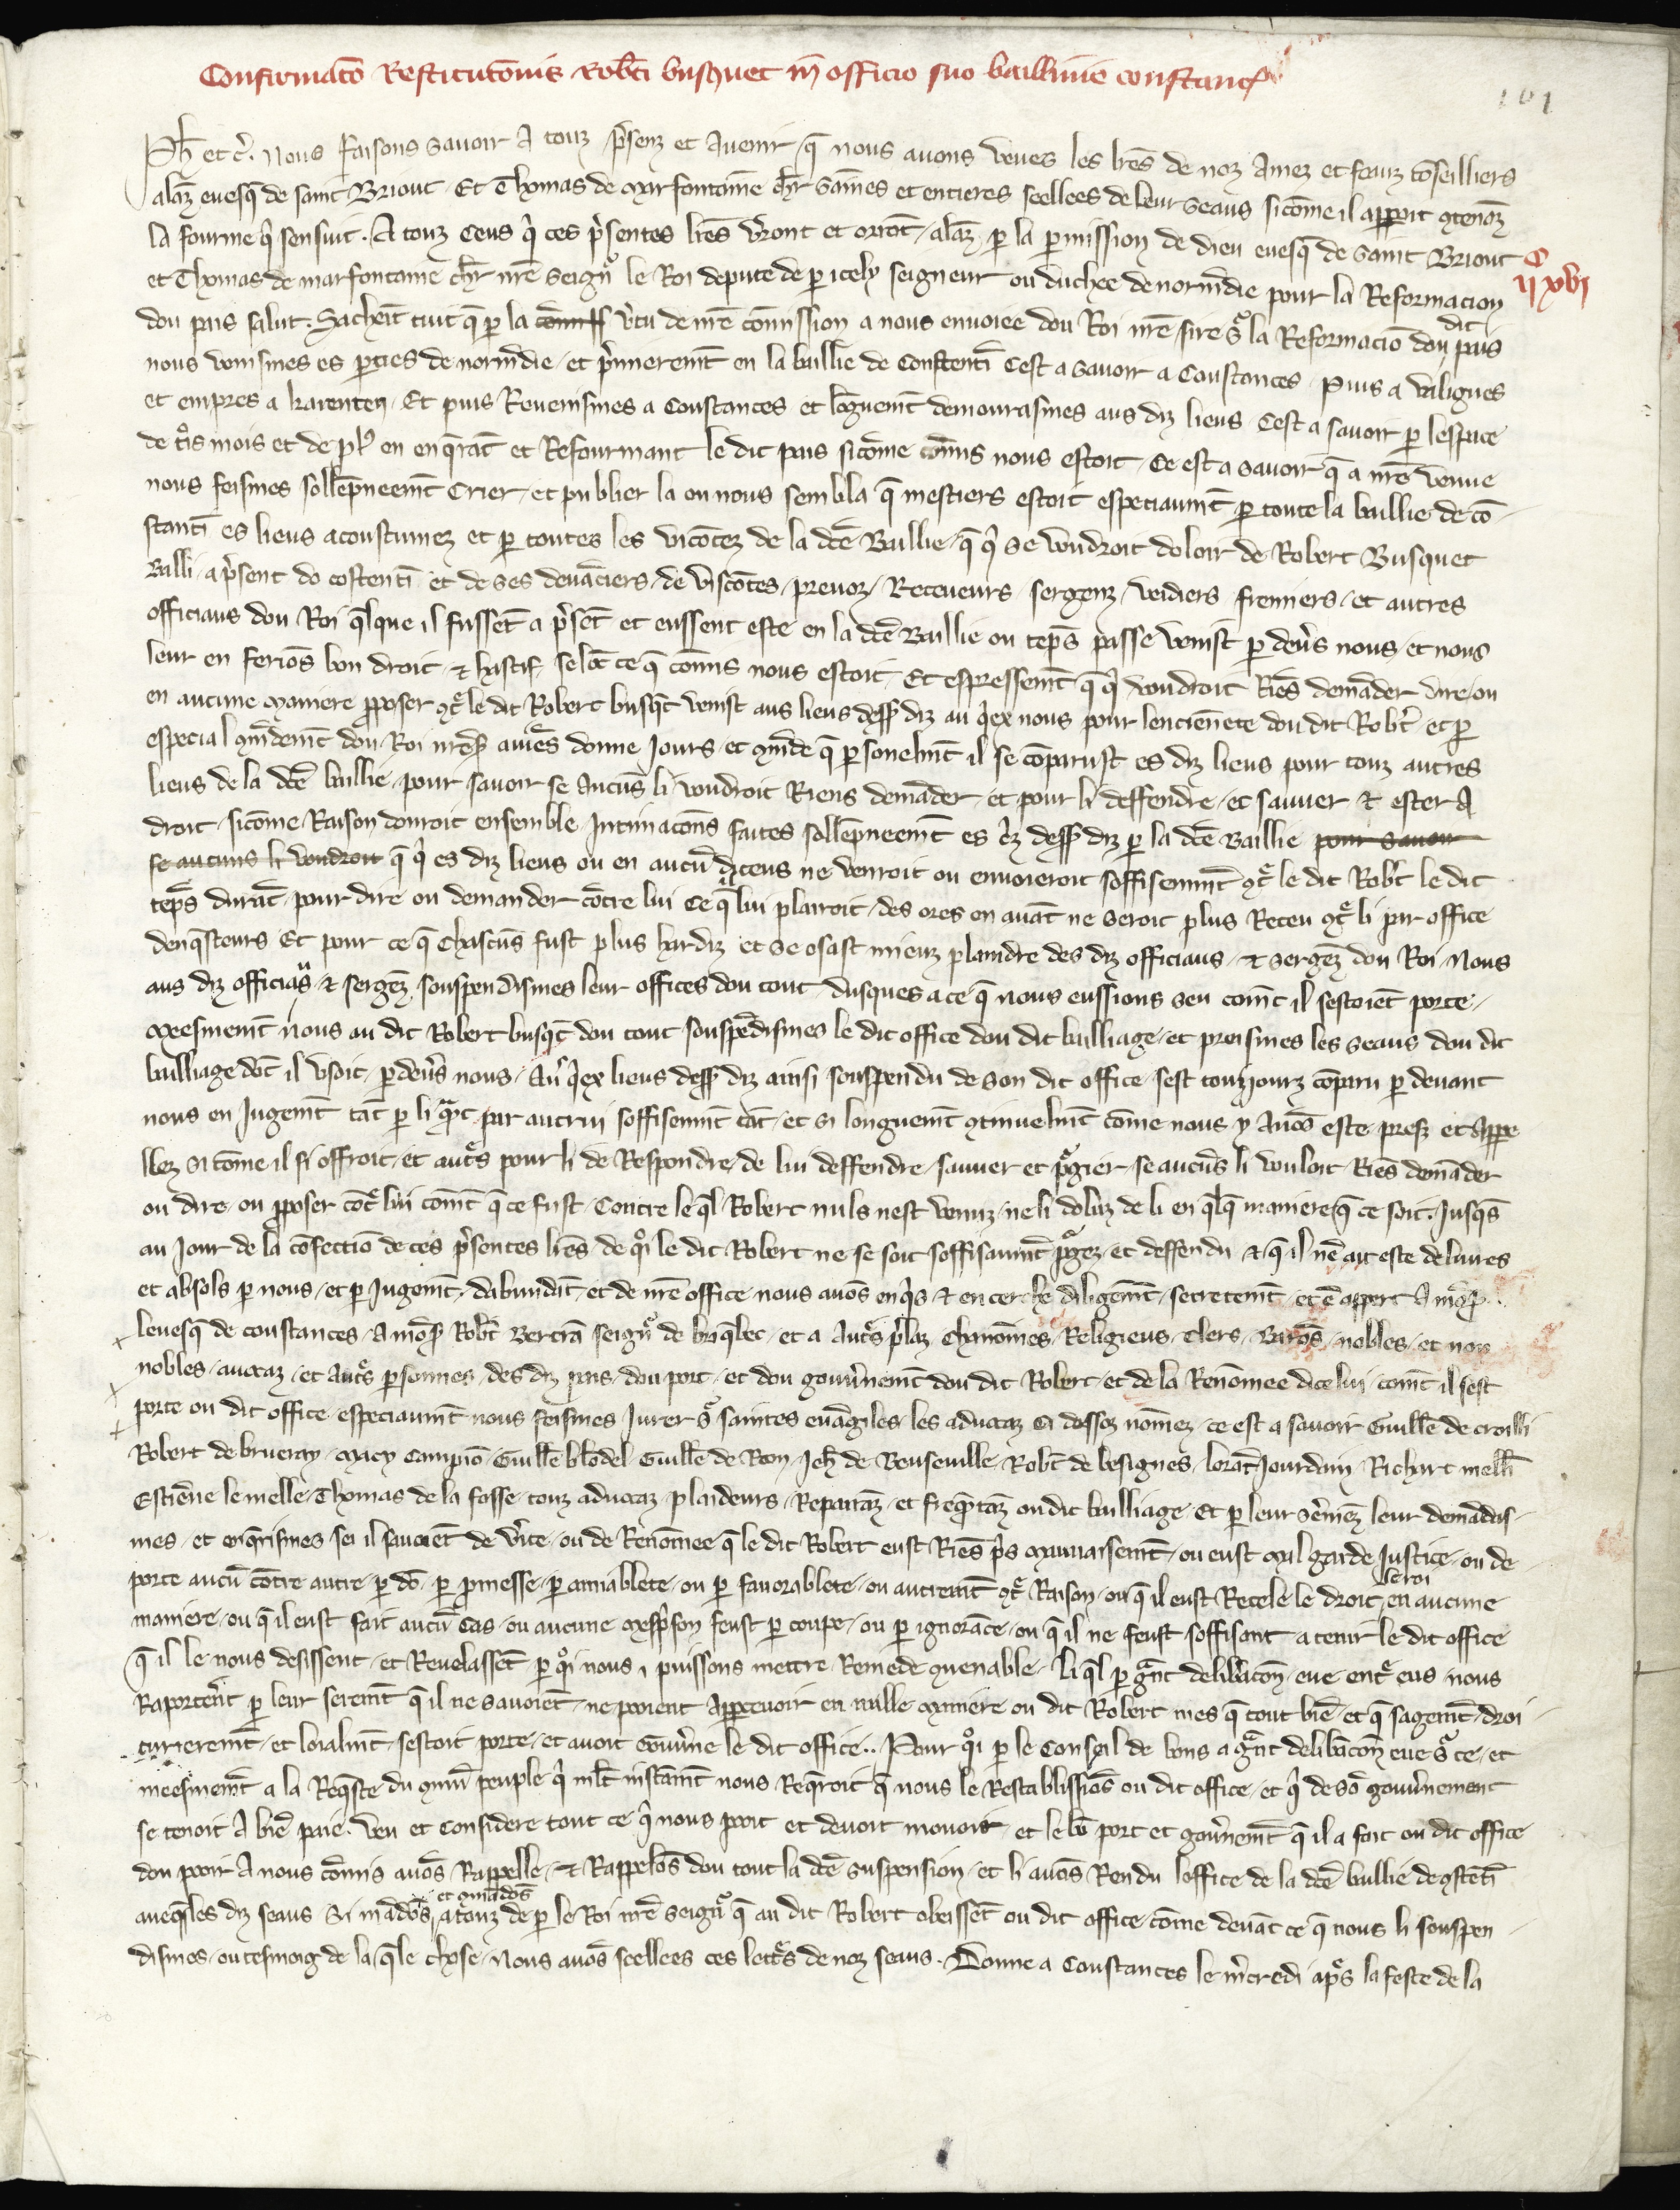 Confirmatō Restitutōnis Rob̄ti busquet in officio suo baillivie constanc̄
161
Ph̄ et c̄. Nous faisons savoir a touz p̄senz et avenir q̄ nous avons veues les l̄res de noz amez et feauz cōseilliers
alaī evesq̄ de saint Briout Et Thomas de Marfontaine ch̄lr saines et entieres seellees de leur seaus sicōme il apparoit 9tenanz
la fourme q̄ sensuit. A touz ceus q̄ ces p̄sentes l̄res v̄ront et orrōt alaī p̄ la p̄mission de dieu evesq̄ de saint Briout
C
et Thomas de marfontaine ch̄lr n̄re seign̄r le Roi depute de p̄ icely seigneur ou duchee de norm̄die pour la Reformacion
ii xvi
dou pais salut. Sachēt tuit q̄ p̄ la comiss v̄tu de n̄re cōmission a nous envoiee dou Roi n̄re sire sr̄ la Reformaciō dou dit pais
nous venismes es p̄ties de norm̄die et p̄mierem̄t en la baillie de Constentī Cest a savoir a Coustances Puis a valignes
et empres a karenten Et puis Revenismes a Coustances et lōguem̄t demourasmes aus diz lieus Cest a savoir p̄ lespace
de t̄is mois et de pl̄s en enq̄rāt et Refourmant le dit pais sicōme cōmis nous estoit Ce est a savoir q̄ a n̄re venue
nous feismes sollēpneem̄t Crier et publier la ou nous sembla q̄ mestiers estoit especiaum̄t p̄ toute la baillie de cō
stantī es lieus acoustumez et p̄ toutes les vicōtez de la d̄ce Baillie q̄ q̄ se voudroit doloir de Robert Busquet
Balli a p̄sent do costentī et de ses devāciers de viscōtes prevoz Receveurs sergenz verdiers fremiers et autres
officiaus dou Roi q̄lque il fussēt a p̄sēt et eussent este en la d̄ce Baillie ou tēps passe venist p̄ dev̄s nous et nous
leur en feriōs bon droit & hastif selōc ce q̄ cōmis nous estoit Et espressem̄t q̄ q̄ voudroit Riēs demāder dire ou
en aucune maniere p̄poser 9t̄ le dit Robert busq̄t venist aus lieus dess̄ diz au q̄ex nous pour lenciēnete dou dit Rob̄t et p̄
especial 9m̄dem̄t dou Roi n̄re s̄ aviēs donne Jours et 9m̄de q̄ p̄sonelm̄t il se cōparust es diz lieus pour touz autres
lieus de la d̄ce baillie pour savoir se aucūs li voudroit Riens demāder et pour li deffendre et sauver & ester a
droit sicōme Raison donroit ensemble Intimacōns faites sollēpneem̄t es c̄iz dess̄ diz p̄ la d̄ce Baillie pour savoir
se aucuns li voudroit q̄ q̄ es diz lieus ou en aucū diceus ne venroit ou envoieroit soffisenm̄t 9t̄ le dit Rob̄t le dit
tēps durāt pour dire ou demander cōtre lui Ce q̄ lui plairoit des ores en avāt ne seroit plus Receu 9t̄ li par office
denq̄steurs Et pour ce q̄ Chascūs fust plus hardiz et se osast mieuz plaindre des diz officiaus & sergēz dou Roi Nous
aus diz officiaus & sergēz souspendismes leur offices dou tout dusques a ce q̄ nous eussions seu cōmt il sestoiēt porte
Meesmem̄t nous au dit Robert busq̄t dou tout souspēdismes le dit office dou dit bailliage et preismes les seaus dou dit
bailliage dōt il usoit p̄dev̄s nous Au q̄ex lieus dess̄ diz ainsi souspendu de son dit office sest touzjourz cōparu p̄ devant
nous en Jugem̄t tāt p̄ li q̄nt par autrui soffisenm̄t tāt et si longuem̄t 9tinuelm̄t cōme nous y avōs este prest et appe
llez si cōme il si offroit et aut̄s pour li de Respondre de lui deffendre sauver et p̄gier se aucūs li vouloit Riēs demāder
ou dire ou p̄poser cōt̄ lui cōmt q̄ ce fust Contre le q̄l Robert nuls nest venuz ne li doluz de li en q̄lq̄ maniere q̄ ce soit. Jusq̄s
au jour de la cōfectiō de ces p̄sentes l̄res de q̄i le dit Robert ne se soit soffisaum̄t p̄gez et deffendu & q̄ il nē ait este delivres
et absols p̄ nous et p̄ Jugem̄t dabundāt et de n̄re office nous avōs enq̄s & encerche diligēmt secretem̄t et a
levesq̄ de coustances a mōs̄ Rob̄t Bertrā seign̄r de briq̄bec et a aut̄s p̄laz Chanōmes Religieus Clers Barōs nobles et non
nobles avocaz et aut̄s p̄sonnes des diz pais dou port et dou gouv̄nem̄t dou dit Robert et de la Renōmee dicelui cōmt il sest
porte ou dit office especiaum̄t nous feismes Jurer sr̄ saintes evāgiles les advocaz ci dessoz nōmez ce est a savoir Guill̄e de croilli
Robert de brueray Macy Campiō Guill̄e blōdel Guill̄e de Ron Jeh̄ de Beuseville Rob̄t de besignes lorāt Jourdain Richart mellī
Estiēne le melle Thomas de la fosse touz advocaz plaideurs Repairāz et freq̄ntāz ou dit bailliage Et p̄ leur s̄emēz leur demādas
mes et enq̄rismes sei il savoiēt de v̄ite ou de Renōmee q̄ le dit Robert eust Riēs p̄s mauvaisem̄t ou eust mal garde Justice ou de
porte aucū cōtre autre p̄ dō p̄ p̄messe p̄ amiablete ou p̄ favorablete ou autrem̄t 9t̄ Raison ou q̄ il eust Recele le droit le roi en aucune
maniere ou q̄ il eust fait aucū cas ou aucune mesp̄son feust p̄ coupe ou p̄ ignorāce ou q̄ il ne feust soffisant a tenir le dit office
q̄ il le nous desissent et Revelassēt p̄ q̄i nous i puissons mettre Remede 9venable Li q̄l p̄ gn̄t delib̄acōn eue ent̄ eus nous
Raportēr̄t p̄ leur serem̄t q̄ il ne savoiēt ne pooient appercevoir en nulle maniere ou dit Robert mes q̄ tout biē et q̄ sagem̄t droi
turierem̄t et loialm̄t sestoit porte et avoit gouv̄ne le dit office.. Pour q̄i p̄ le Conseil de bons a gn̄t delib̄acōn eue sr̄ ce et
meesmem̄t a la Req̄ste du 9mū peuple q̄ ml̄t instām̄t nous Req̄roit q̄ nous le Restablissiōs ou dit office et q̄ de sō gouv̄nement
se tenoit a biē paie. Veu et Considere tout ce q̄ nous pooit et devoit movoir et le bō port et gov̄nem̄t q̄ il a fait ou dit office
dou pooir a nous cōmis avōs Rappelle & Rappelōs dou tout la d̄ce suspension et li avōs Rendu loffice de la d̄ce baillie de 9stētī
aveq̄s les diz seaus Si mādōs et 9mādōs a touz de p̄ le Roi n̄re seign̄r q̄ au dit Robert obeissēt ou dit office cōme devāt ce q̄ nous li souspen
dismes ou tesmoig de la q̄le chose Nous avōs seellees ces lett̄s de noz seaus. Donne a Coustances le m̄credi ap̄s la feste de la